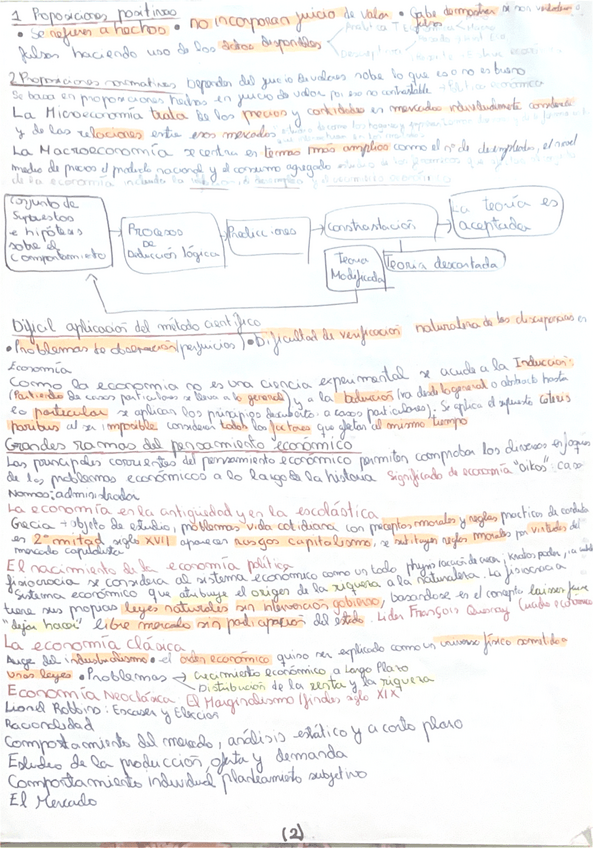 1 Proposiciones positivas
• Se refieren a hechos • no incorporan juicio de valor • Cabe demostrar si son verdaderas o
falsas haciendo uso de los datos disponibles
2. Proposiciones normativas Dependen del juicio de valores sobre lo que es o no es bueno
Se basa en proposiciones hechas en juicio de valor por eso no contrastable
La Microeconomía trata de los precios y cantidades en mercados individualmente considerados
y de las relaciones entre esos mercados
La Macroeconomía se centra en temas más amplios como el nº de desempleados, el nivel
medio de precios el producto nacional y el consumo agregado
de la economía
Conjunto de
supuestos
e hipótesis
sobre el
comportamiento
Procesos
DE
Deducción lógica
Predicciones
Constrastación
La teoría es
aceptada
Teoría
Modificada
Teoría descartada
Difícil aplicación del método científico
• Problemas de observación (perjuicios) • Dificultad de verificación naturaleza de las discrepancias en
Economía
Como la economía no es una ciencia experimental se acude a la Inducción:
(Partiendo de casos particulares se lleva a lo general) y a la deducción (va desde lo general o abstracto hasta
lo particular se aplican los principios descubiertos a casos particulares). Se aplica el supuesto Ceteris
paribus al ser imposible considerar todos los factores que afectan al mismo tiempo
Grandes rammas del pensamiento económico
Las principales corrientes del pensamiento económico permiten comprobar los diversos enfoques
de los problemas económicos a lo largo de la historia Significado de economía "Oikos": casa
Nomos: administrador
La economía en la antigüedad y en la escolástica
Grecia → objeto de estudio, problemas vida cotidiana con preceptos morales y reglas practicas de conducta
en 2ª mitad siglo XVII aparecen rasgos capitalismo, se sustituyen reglas morales por virtudes del
mercado capitalista
El nacimiento de la economía política
fisiocracia se considera al sistema económico como un todo
Sistema económico que atribuye el origen de la riqueza a la naturaleza. La fisiocracia
tiene sus propias leyes naturales sin intervención gobierno, basandose en el concepto laisser faire
"dejar hacer" libre mercado sin participación del estado. Lider François Quesnay Cuadro económico
La economía Clásica
Auge del industrialismo • el orden económico quiso ser explicado como un universo físico sometido a
unas leyes • Problemas → Crecimiento económico a Largo Plazo
Distribución de la renta y la riqueza
Economía Neoclásica: El Marginalismo (finales siglo XIX)
Lionel Robbins: Escasez y Elección
Racionalidad
Comportamiento del mercado, análisis estático y a corto plazo
Estudio de la producción, oferta y demanda
Comportamiento individual planteamiento subjetivo
El Mercado
(2)